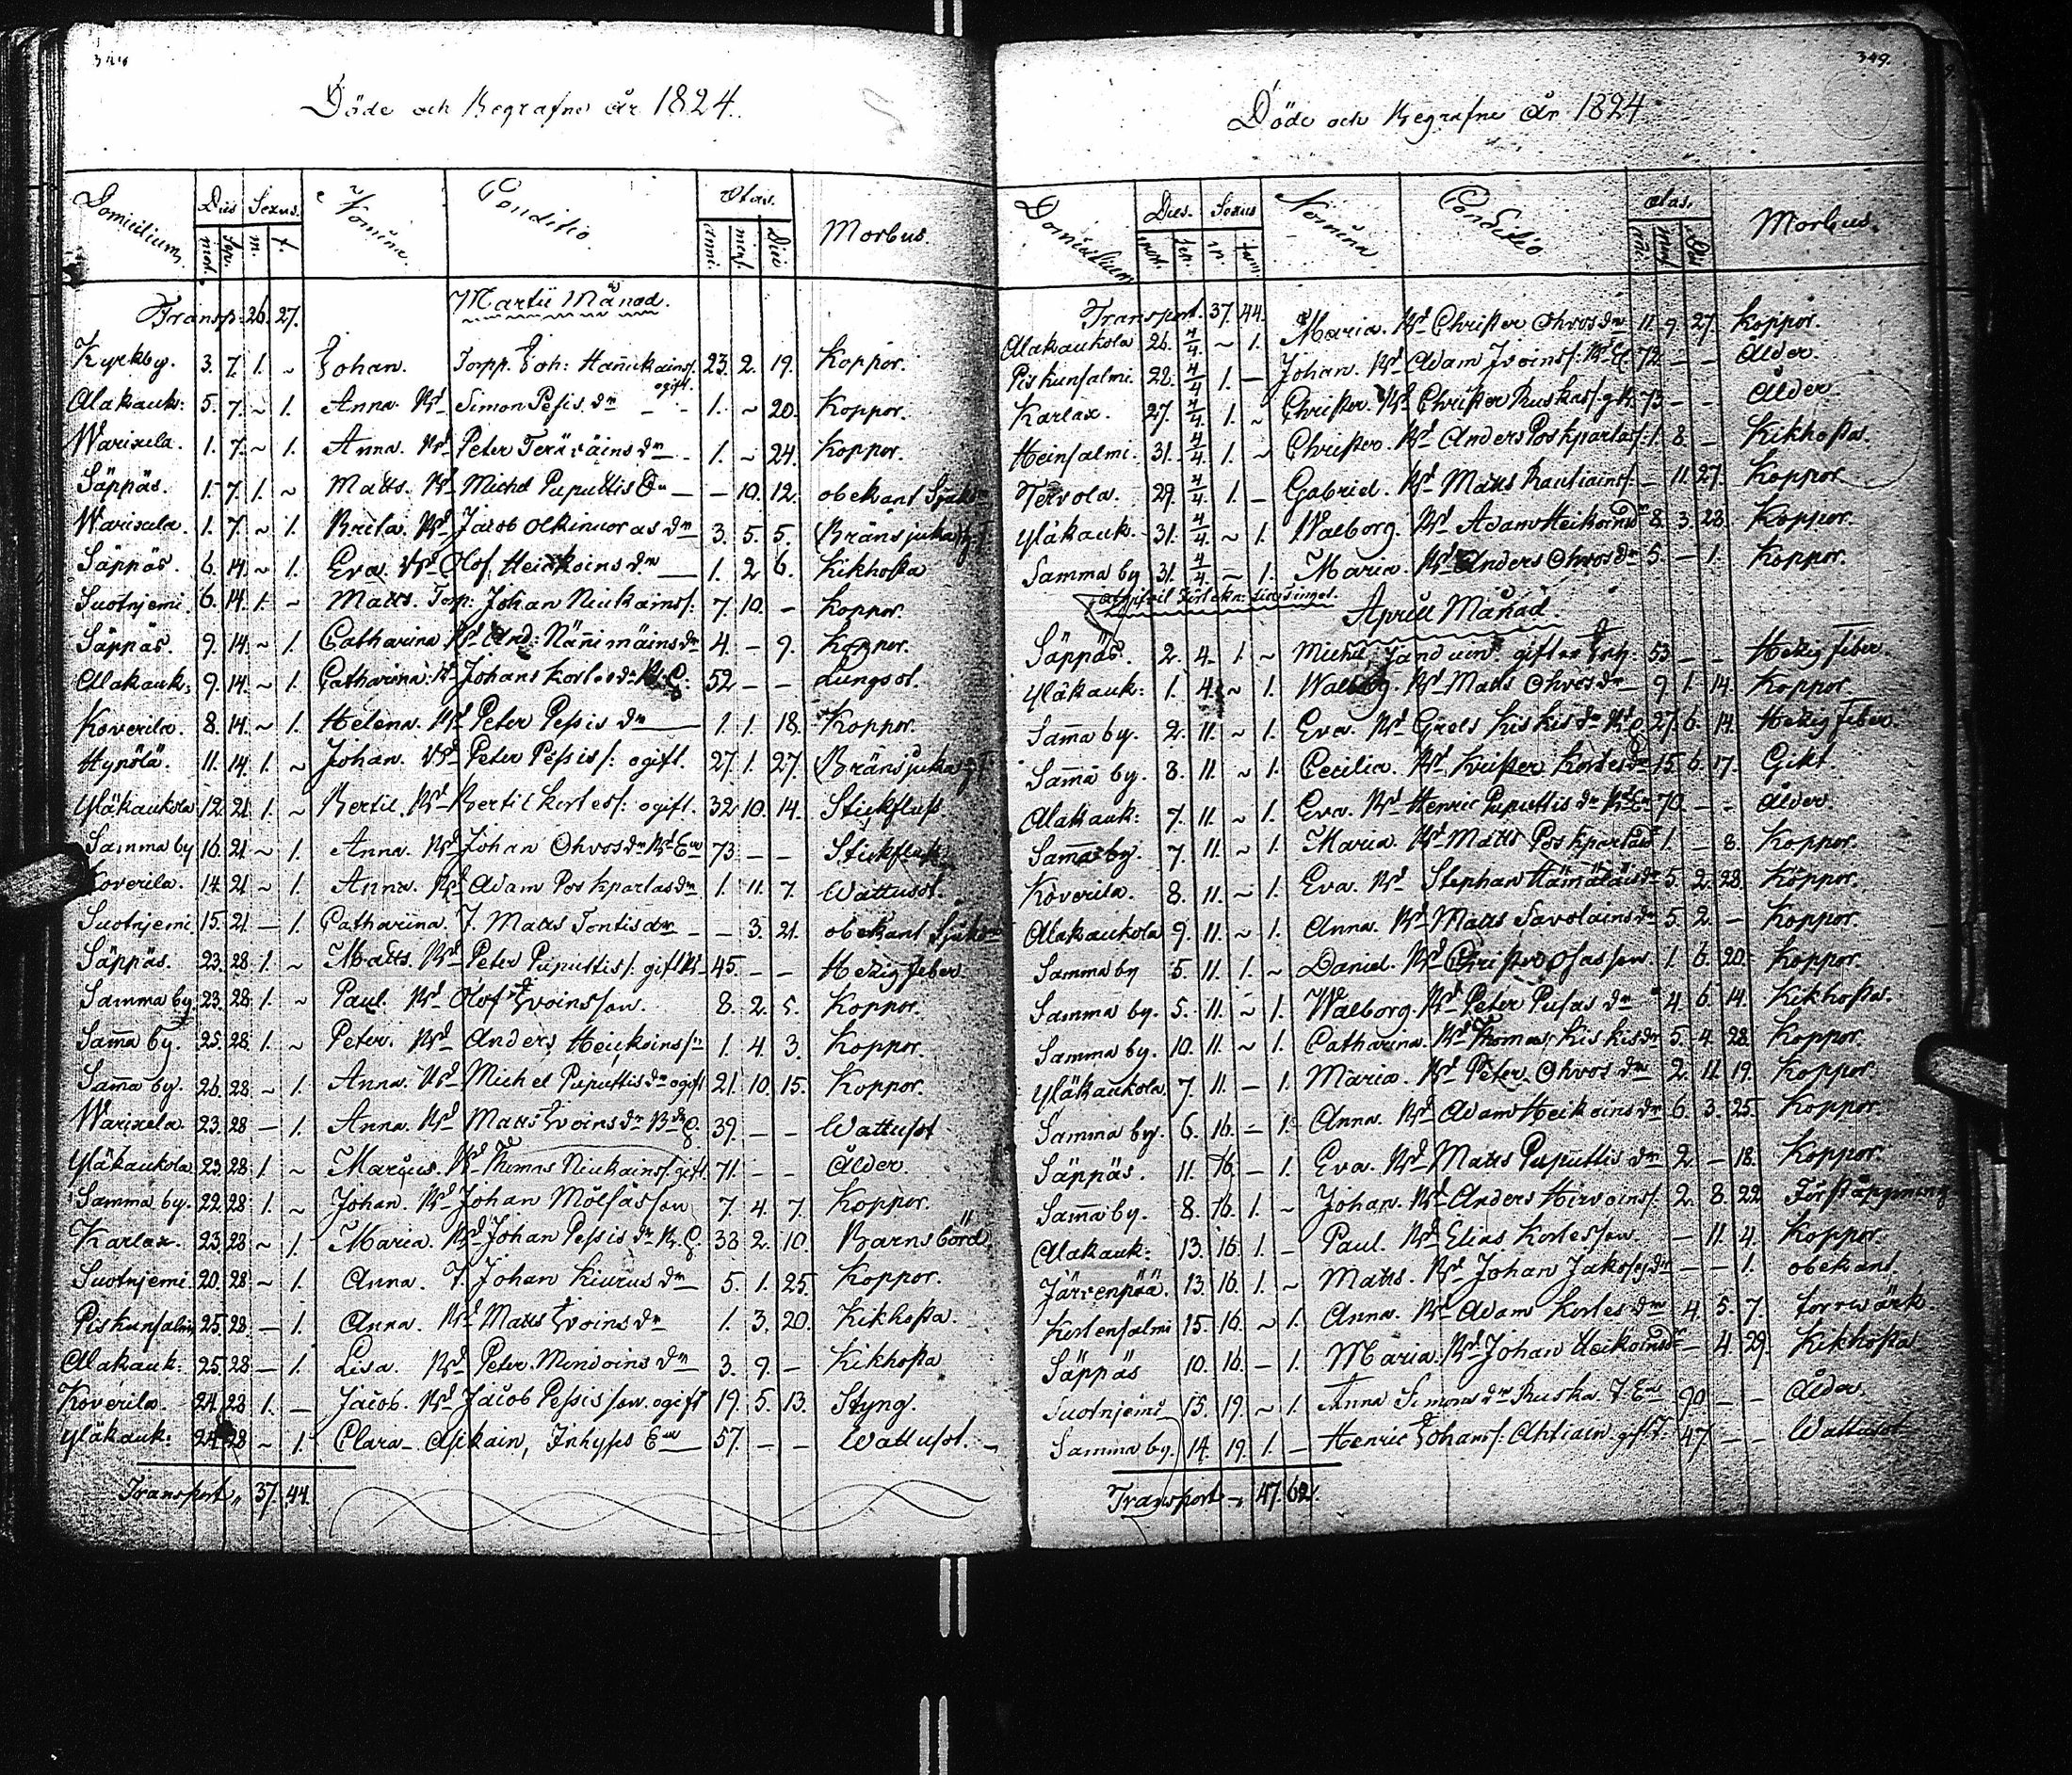 348
Döde och Begrafne år 1824.
Domicilium. Dies Sexus. Nomina. Conditio. Ætas. Morbus.
mort. sep. m. f. anni. mens. Dies
Transp: 26. 27. Martii Månad.
Kyrkby. 3. 7. 1. ~ Johan. Torpp. Joh: Hannikainss. ogift. 23. 2. 19. Koppor.
Alakauk: 5. 7. ~ 1. Anna. Bd Simon Pessis dr 1. ~ 20. Koppor.
Warixela. 1. 7. ~ 1. Anna. Bd Peter Teräväins dr 1. ~ 24. Koppor.
Säppäs. 1. 7. 1. ~ Matts. Bd Michel Puputtis Sn — 10. 12. obekant Sjukd
Warixela. 1. 7. ~ 1. Brita. Bd Jacob Olkinuoras dr 3. 5. 5. Bränsjuka
Säppäs. 6. 14. ~ 1. Eva. Bd Olof Heickoins dr 1. 2 6. Kikhosta
Suotnjemi. 6. 14. 1. ~ Matts. Torp: Johan Niukainss: 7. 10. - Koppor.
Säppäs. 9. 14. ~ 1. Catharina Bd And: Nänimäins dr 4. - 9. Koppor.
Alakauk: 9. 14. ~ 1. Catharina. Bd Johans Kortes dr B. E: 52 - - Lungsot.
Koverila. 8. 14. ~ 1. Helena. Bd Peter Pessis dr 1. 1. 18. Koppor.
Hynölä. 11. 14. 1. ~ Johan. Bd Peter Pessiss: ogift. 27. 1. 27. Bränsjuka
Yläkaukola 12. 21. 1. ~ Bertil. Bd Bertil Kortess: ogift. 32 10. 14. Stickfluss
Samma by 16. 21. ~ 1. Anna. Bd Johan Ohvos dr Bd Ea 73 - - Stickfluss
Koverila. 14. 21 ~ 1. Anna. Bd Adam Poskpartas dr 1. 11. 7. Wattusot.
Suotnjemi. 15. 21. — 1. Catharina. T. Matts Tontis dr - - 3. 21. obekant Sjukd
Säppäs. 23. 28. 1. ~ Matts. Bd Peter Puputtiss: gift B. 45. - - Hetzig feber
Samma by. 23. 28. 1. ~ Paul. Bd Olof Ivoinsson. 8. 2. 5. Koppor.
Sama by. 25. 28. 1. ~ Peter. Bd Anders Heickoinssn 1. 4. 3. Koppor.
Sama by. 26. 28. ~ 1. Anna. Bd Michel Puputtis dr ogift 21. 10. 15. Koppor.
Warixela. 23. 28 — 1. Anna. Bd Matts Ivoins dr Bd E. 39. - - Wattusot
Yläkaukola. 23. 28. 1. ~ Marcus. Bd Thomas Niukainss. gift. 71. - - Ålder
Samma by. 22. 28. 1. ~ Johan. Bd Johan Mölsässon 7. 4. 7. Koppor.
Karlax. 23. 28. ~ 1. Maria. Bd Johan Pessis dr B. E. 38. 2. 10. Barnsbörd
Suotnjemi. 20. 28. ~ 1. Anna. T. Johan Kiurus dr 5. 1. 25. Koppor.
Piskunsalmi 25. 28. — 1. Anna. Bd Matts Ivoins dr 1. 3. 20. Kikhosta.
Alakauk: 25. 28 — 1. Lisa. Bd Peter Monsoins dr 3. 9. - Kikhosta
Koverila. 24. 28 1. — Jacob. Bd Jacob Pessisson. ogift 19. 5. 13. Styng.
Yläkauk: 24. 28 ~ 1. Clara Askain, Inhyses Ea 57. - - Wattusot.
Transport „ 37. 44.
349.
Döde och Begrafne År 1824
Domicilium Dies. Sexus Nomina Conditio Ætas. Morbus.
mort. sep. m. fem. åhr. Mens Dies
Transport. 37. 44.
Alakaukola 26. 4/4. ~ 1. Maria. Bd Christer Ohvos dr 11. 9. 27. Koppor.
Piskunsalmi. 28. 4/4. 1. — Johan. Bd Adam Ivoinss: 72. - - Ålder
Karlax. 27. 4/4. 1. ~ Christer. Bd Christer Ruskass: g B. 73 - - Ålder
Heinsalmi. 31. 4/4. 1. ~ Christer. Bd Anders Poskpartass: 1. 8. - Kikhosta.
Tervola. 29. 4/4. 1. — Gabriel. Bd Matts Rautiainss. - 11. 27. Koppor
Yläkauk. 31. 4/4. ~ 1. Walborg. Bd Adam Heikoins dr 8. 3. 28. Koppor.
Samma by 31. 4/4. ~ 1. Maria. Bd Anders Ohvos dr 5 - 1. Koppor.
Aprill Månad
Säppäs. 2. 4. 1. ~ Michel gift 53 - - Hetzig feber.
Yläkauk: 1. 4. ~ 1. Walborg. Bd Matts Ohvos dr 9. 1. 14. Koppor
Sama by. 2. 11. ~ 1. Eva. Bd Grels Kiskis dr Bd E 27. 6. 14. Hetzig feber
Sama by. 8. 11. ~ 1. Cecilia. Bd Krister Kortes dr 15. 6. 17. Gikt.
Alakauk: 7. 11. ~ 1. Eva. Bd Henric Puputtis dr Bd Ea 70. - - Ålder
Sama by. 7. 11. ~ 1. Maria. Bd Matts Poskpartas dr 1. - 8. Koppor.
Koverila. 8. 11. ~ 1. Eva. Bd Stephan Hämäläis dr 5. 2. 28. Koppor.
Alakaukola 9. 11. ~ 1. Anna. Bd Matts Savolains dr 5. 2. - Koppor.
Samma by 5. 11. 1. ~ Daniel. Bd Christer 1. 6. 20. Koppor.
Samma by. 5. 11. ~ 1. Walborg. Bd Peter Pusas dr 4 6. 14. Kikhosta.
Samma by. 10. 11. ~ 1. Catharina. Bd Thomas Kiskis dr 5. 4. 28. Koppor.
Yläkaukola. 7. 11. — 1. Maria. Bd Peter Ohvos dr 2. 11. 19. Koppor
Samma by. 6. 16. — 1. Anna. Bd Adam Heikoins dr 6. 3. 25. Koppor.
Säppäs. 11. 16. — 1. Eva. Bd Matts Puputtis dr 2. - 18. Koppor.
Sama by. 8. 16. 1. ~ Johan. Bd Anders Hirvoinss. 2. 8. 22. Förstäppning
Alakauk: 13. 16. 1. — Paul. Bd Elias Kortesson. - 11. 4. Koppor.
Järvenpää. 13. 16. 1. ~ Matts. Bd Johan - - 1. obekant
Kortensalmi 15. 16. ~ 1. Anna. Bd Adam Kortes dr 4. 5. 7. torrwärk
Säppäs 10. 16. — 1. Maria. Bd Johan Heikoins dr - 4. 29. Kikhosta
Suotnjemi 15. 19. ~ 1. Anna Simons dr Ruska T. Ea 90 - - Ålder.
Samma by. 14. 19. 1. — Henric Johans: Ahtiain gift T. 47 - - Wattusot
Transport „ 47. 62.